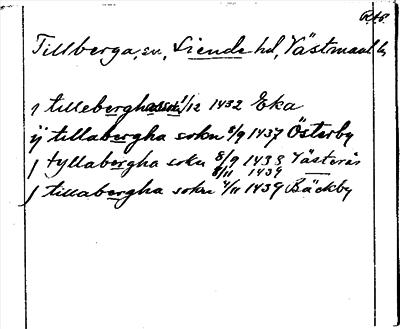 Rtb.
Tillberga, sn, Siende hd, Västmanl
j tillebergha sokn 1/12 1432 Eka
ij tillabergha sokn 8/9 1437 Österby
j tyllabergha sokn 8/9 1438 Västerås
8/11 1439
j tillabergha sokn 4/11 1439 Bäckby